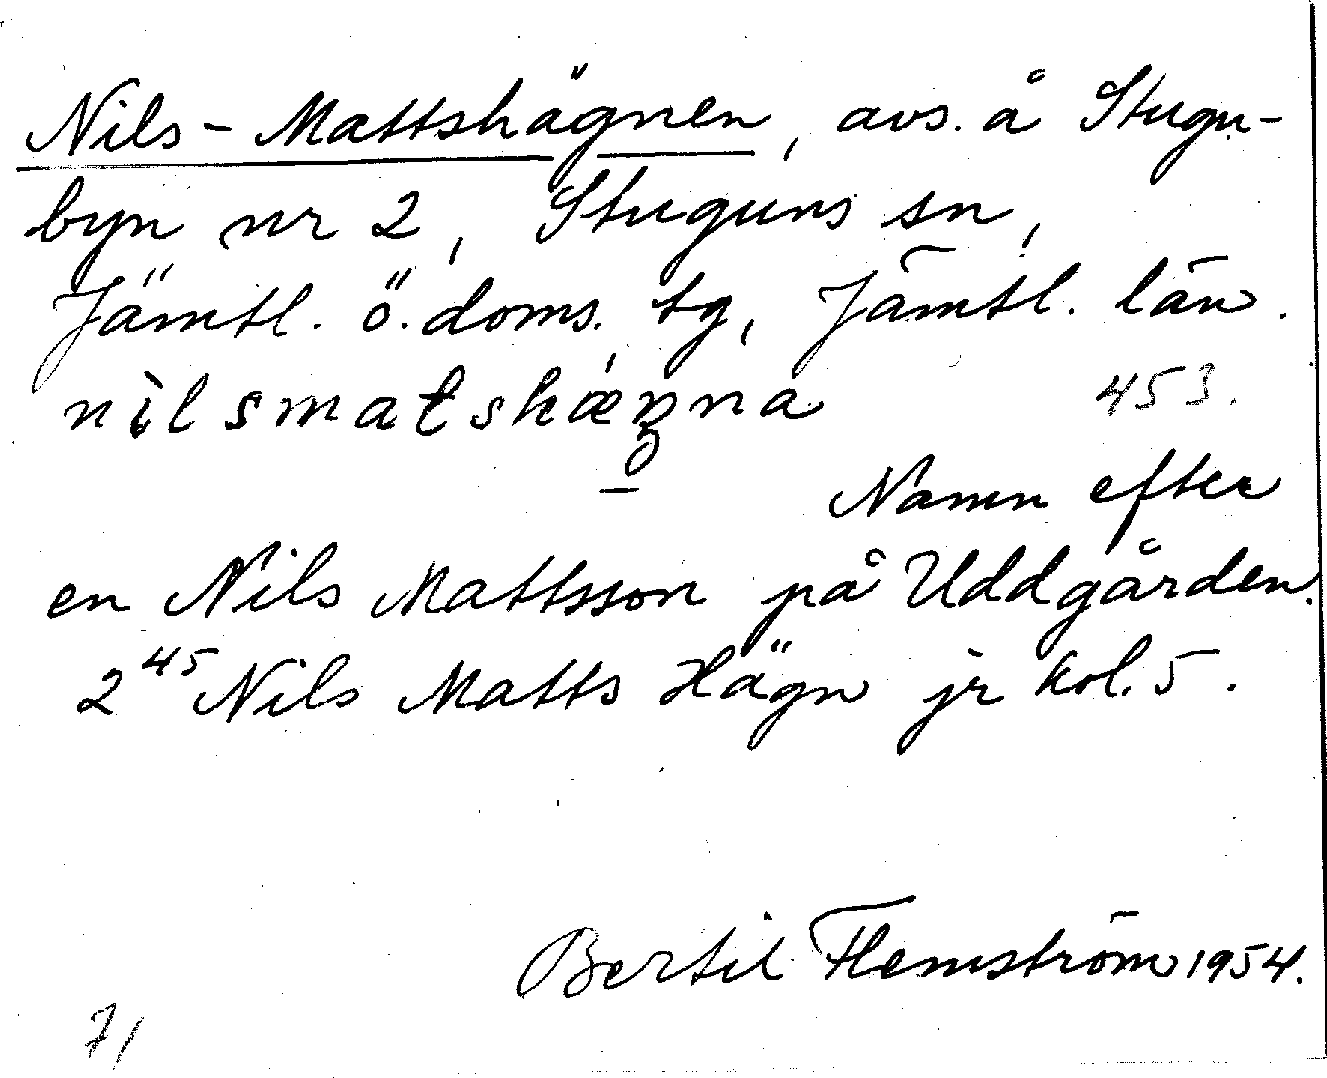 Nils-Mattshägnen, avs. å Stugu-
byn nr 2, Stuguns sn,
Jämtl. ö. doms. tg, Jämtl. län.
nilsmatshæŋna 453.
Namn efter
en Nils Mattsson på Uddgården.
2⁴⁵ Nils Matts Hägn jr kol. 5.
Bertil Flemström 1954.
71